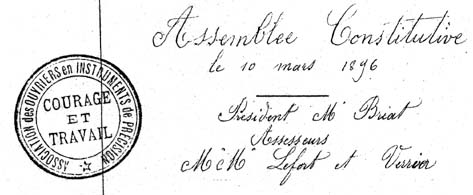 Assemblée Constitutive
le 10 mars 1896
Président Mr Briat
Assesseurs
M & M Lefort et Verrier
ASSOCIATION des OUVRIERS en INSTRUMENTS de PRÉCISION
COURAGE
ET
TRAVAIL